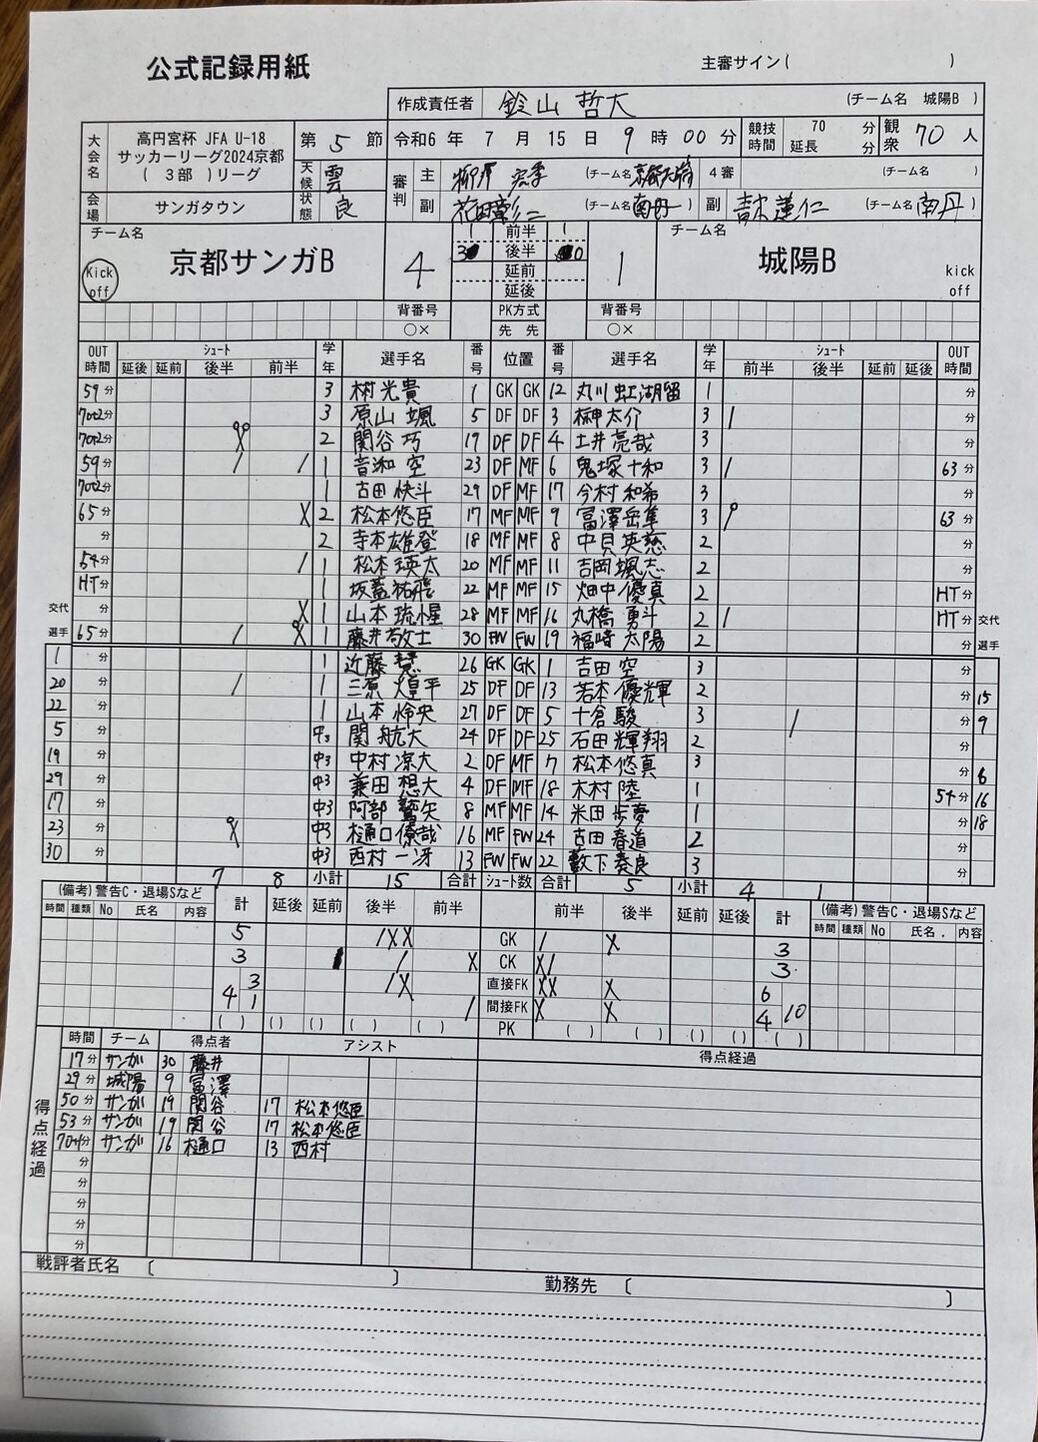 公式記録用紙
主審サイン( )
作成責任者 鈴山 哲大 (チーム名 城陽B )
大会名 高円宮杯 JFA U-18 サッカーリーグ2024京都 ( 3部 )リーグ
第 5 節 令和6 年 7 月 15 日 9 時 00 分
競技時間 70 分 延長 分 観衆 70 人
会場 サンガタウン
天候 雲 状態 良
審判 主 (チーム名 ) 4審 (チーム名 )
副 (チーム名 ) 副 青木蓮仁 (チーム名 南丹 )
チーム名 京都サンガB 4 1 チーム名 城陽B
Kick off kick off
1 前半 1
3 後半 0
延前
延後
背番号 PK方式 背番号
○× 先 先 ○×
OUT時間 シュート 延後 延前 後半 前半 学年 選手名 番号 位置 番号 選手名 学年 シュート 前半 後半 延前 延後 OUT時間
59分 3 林 光貴 1 GK GK 12 丸川 虹湖留 1 分
70+2分 3 原山 颯 5 DF DF 3 太介 3 / 分
70+2分 2 関谷 巧 19 DF DF 4 土井 亮哉 3 分
59分 / / 1 音和 空 23 DF MF 6 鬼塚 十和 3 / 63分
70+2分 1 古田 快斗 29 DF MF 17 今村 和希 3 分
65分 X 2 松本 悠臣 17 MF MF 9 冨澤 岳隼 3 63分
分 2 寺本 雄登 18 MF MF 8 中見 英慈 2 分
54分 / 1 松本 瑛太 20 MF MF 11 吉岡 颯志 2 分
HT分 1 坂蓋 祐飛 22 MF MF 15 畑中 優真 2 HT分
交代 分 X 1 山本 琉惺 28 MF MF 16 丸橋 勇斗 2 / HT分 交代
選手 65分 / 1 藤井 敬士 30 FW FW 19 福崎 太陽 2 分 選手
1 分 1 近藤 慧 26 GK GK 1 吉田 空 3 分
20 分 / 1 三原 煌平 25 DF DF 13 若本 優輝 2 分 15
22 分 1 山本 怜央 27 DF DF 5 十倉 駿 3 / 分 9
5 分 中3 関 航大 24 DF DF 25 石田 輝翔 2 分
19 分 中3 中村 凉大 2 DF MF 7 松本 悠真 3 分 6
29 分 中3 兼田 想大 4 DF MF 18 木村 陸 1 54分 16
17 分 中3 阿部 鷲矢 8 MF MF 14 米田 歩夢 1 分 18
23 分 中3 樋口 僚哉 16 MF FW 24 古田 春道 2 分
30 分 中3 西村 一冴 13 FW FW 22 藪下 奏良 3 分
7 8 小計 15 合計 シュート数 合計 5 小計 4 1
(備考)警告C・退場Sなど 計 延後 延前 後半 前半 前半 後半 延前 延後 計 (備考)警告C・退場Sなど
時間 種類 No 氏名 内容 時間 種類 No 氏名 内容
5 /XX GK / X 3
3 / X CK X/ 3
4 3 /X 直接FK XX X 6
1 / 間接FK X X 4 10
( ) ( ) ( ) ( ) ( ) PK ( ) ( ) ( ) ( ) ( )
得点経過
時間 チーム 得点者 アシスト 得点経過
17分 サンガ 30 藤井
29分 城陽 9 冨澤
50分 サンガ 19 関谷 17 松本悠臣
53分 サンガ 19 関谷 17 松本悠臣
70+1分 サンガ 16 樋口 13 西村
分
分
分
分
分
戦評者氏名 〔 〕 勤務先 〔 〕